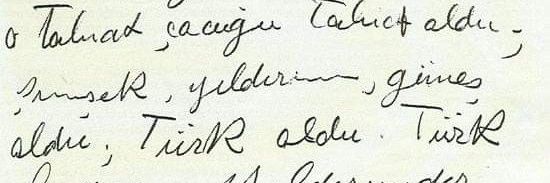 o Tabiat çocuğu Tabiat oldu;
şimşek, yıldırım, güneş
oldu; Türk oldu. Türk